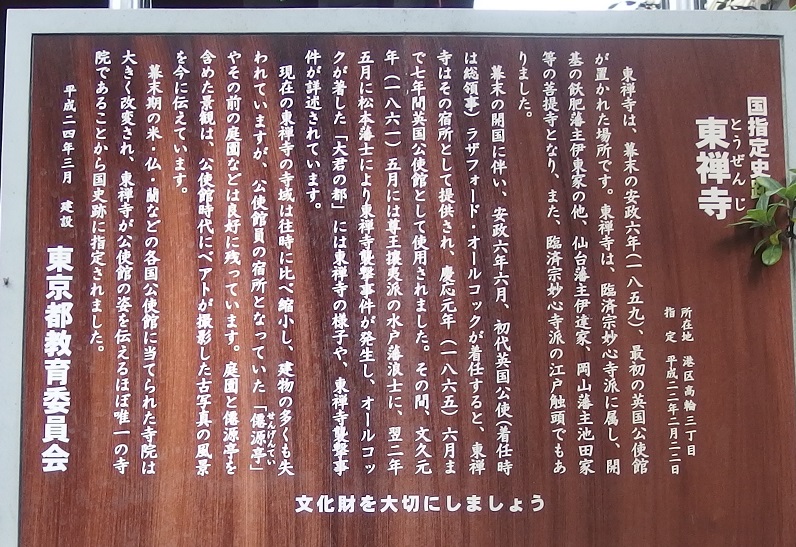 国指定史
東禅寺
とうぜんじ
所在地 港区高輪三丁目
指定 平成二二年二月二二日
東禅寺は、幕末の安政六年(一八五九)、最初の英国公使館
が置かれた場所です。東禅寺は、臨済宗妙心寺派に属し、開
基の飫肥藩主伊東家の他、仙台藩主伊達家、岡山藩主池田家
等の菩提寺となり、また、臨済宗妙心寺派の江戸触頭でもあ
りました。
幕末の開国に伴い、安政六年六月、初代英国公使(着任時
は総領事)ラザフォード・オールコックが着任すると、東禅
寺はその宿所として提供され、慶応元年(一八六五)六月ま
で七年間英国公使館として使用されました。その間、文久元
年(一八六一)五月には尊王攘夷派の水戸藩浪士に、翌二年
五月に松本藩士により東禅寺襲撃事件が発生し、オールコッ
クが著した「大君の都」には東禅寺の様子や、東禅寺襲撃事
件が詳述されています。
現在の東禅寺の寺域は往時に比べ縮小し、建物の多くも失
われていますが、公使館員の宿所となっていた「僊源亭」
せんげんてい
やその前の庭園などは良好に残っています。庭園と僊源亭を
含めた景観は、公使館時代にベアトが撮影した古写真の風景
を今に伝えています。
幕末期の米・仏・蘭などの各国公使館に当てられた寺院は
大きく改変され、東禅寺が公使館の姿を伝えるほぼ唯一の寺
院であることから国史跡に指定されました。
平成二四年三月 建設
東京都教育委員会
文化財を大切にしましょう